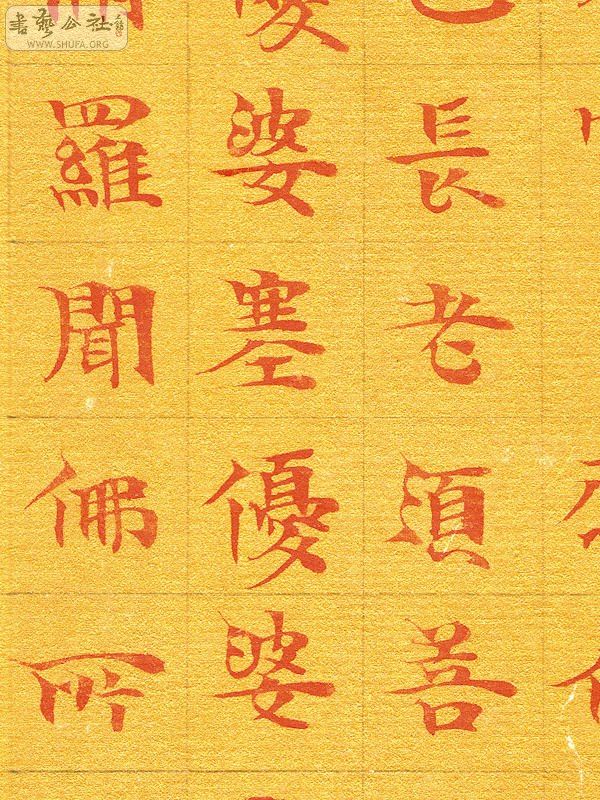 長老須菩
婆塞優婆
羅聞佛所
書藝公社
WWW.SHUFA.ORG